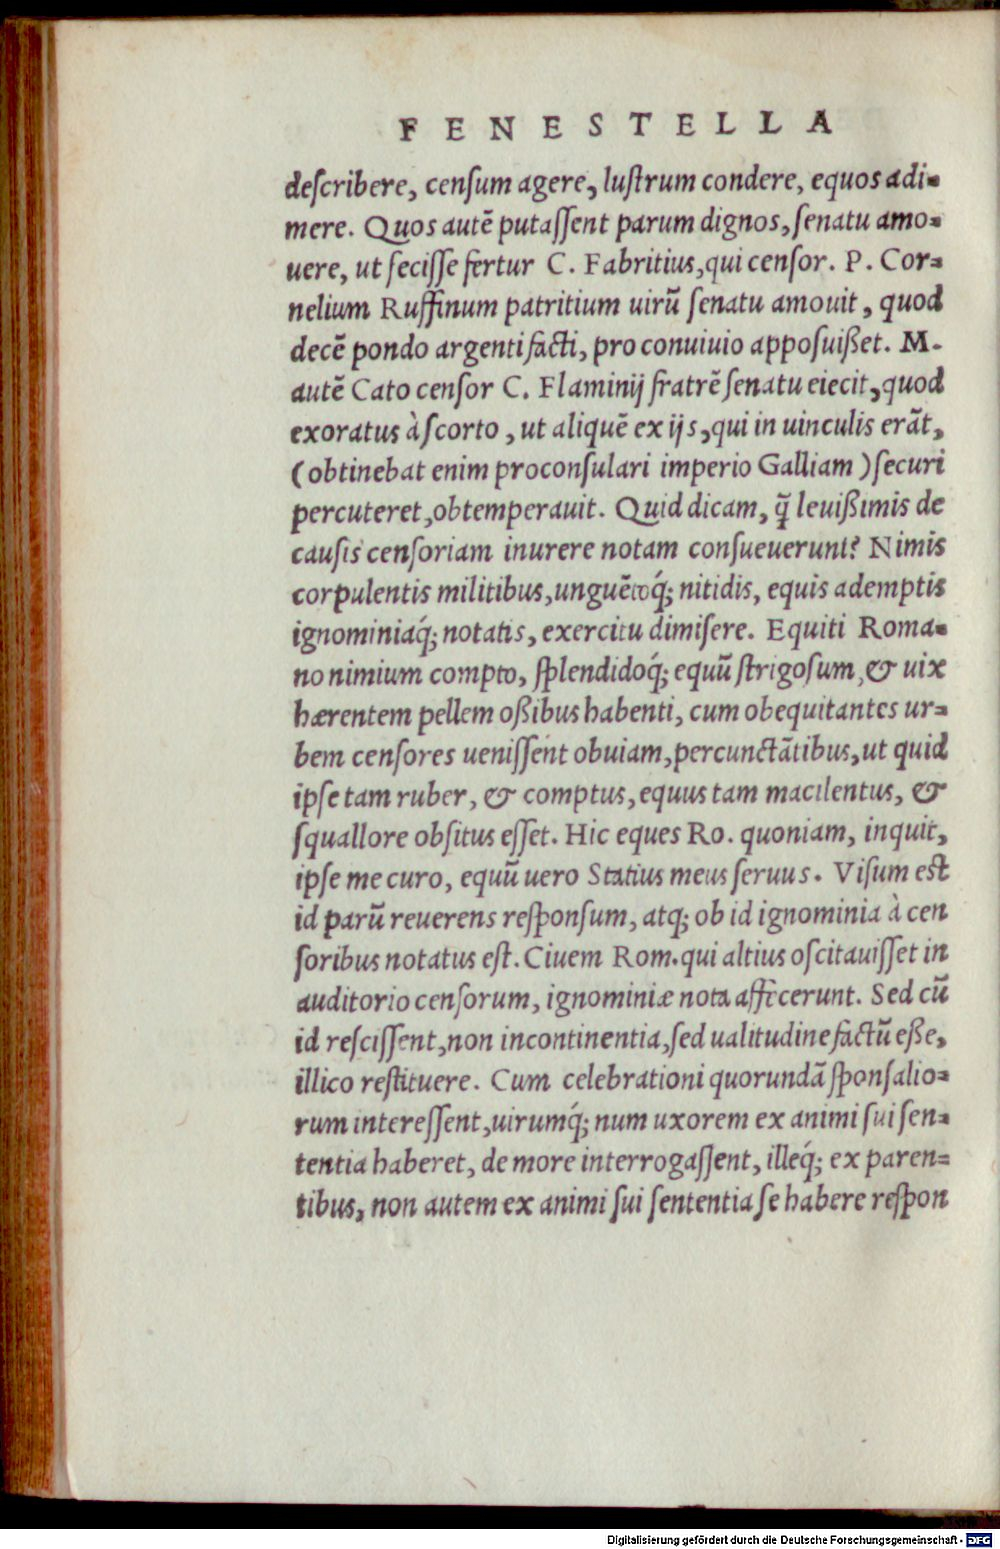 FENESTELLA
deſcribere, cenſum agere, luſtrum condere, equos adi-
mere. Quos autẽ putaſſent parum dignos, ſenatu amo-
uere, ut feciſſe fertur C. Fabritius, qui cenſor. P. Cor-
nelium Ruffinum patritium uirũ ſenatu amouit, quod
decẽ pondo argenti facti, pro conuiuio appoſuißet. M.
autẽ Cato cenſor C. Flaminij fratrẽ ſenatu eiecit, quod
exoratus à ſcorto, ut aliquẽ ex ijs, qui in uinculis erãt,
(obtinebat enim proconſulari imperio Galliam) ſecuri
percuteret, obtemperauit. Quid dicam, q̃ leuißimis de
cauſis cenſoriam inurere notam conſueuerunt? Nimis
corpulentis militibus, unguẽtoq́; nitidis, equis ademptis
ignominiaq́; notatis, exercitu dimiſere. Equiti Roma-
no nimium compto, ſplendidoq́; equũ ſtrigoſum, & uix
hærentem pellem oßibus habenti, cum obequitantes ur-
bem cenſores ueniſſent obuiam, percunctãtibus, ut quid
ipſe tam ruber, & comptus, equus tam macilentus, &
ſquallore obſitus eſſet. Hic eques Ro. quoniam, inquit,
ipſe me curo, equũ uero Statius meus ſeruus. Viſum eſt
id parũ reuerens reſponſum, atq; ob id ignominia à cen
ſoribus notatus eſt. Ciuem Rom. qui altius oſcitauiſſet in
auditorio cenſorum, ignominiæ nota affecerunt. Sed cũ
id reſciſſent, non incontinentia, ſed ualitudine factũ eße,
illico reſtituere. Cum celebrationi quorundã ſponſalio-
rum intereſſent, uirumq́; num uxorem ex animi ſui ſen-
tentia haberet, de more interrogaſſent, illeq́; ex paren-
tibus, non autem ex animi ſui ſententia ſe habere reſpon
Digitalisierung gefördert durch die Deutsche Forschungsgemeinschaft - DFG